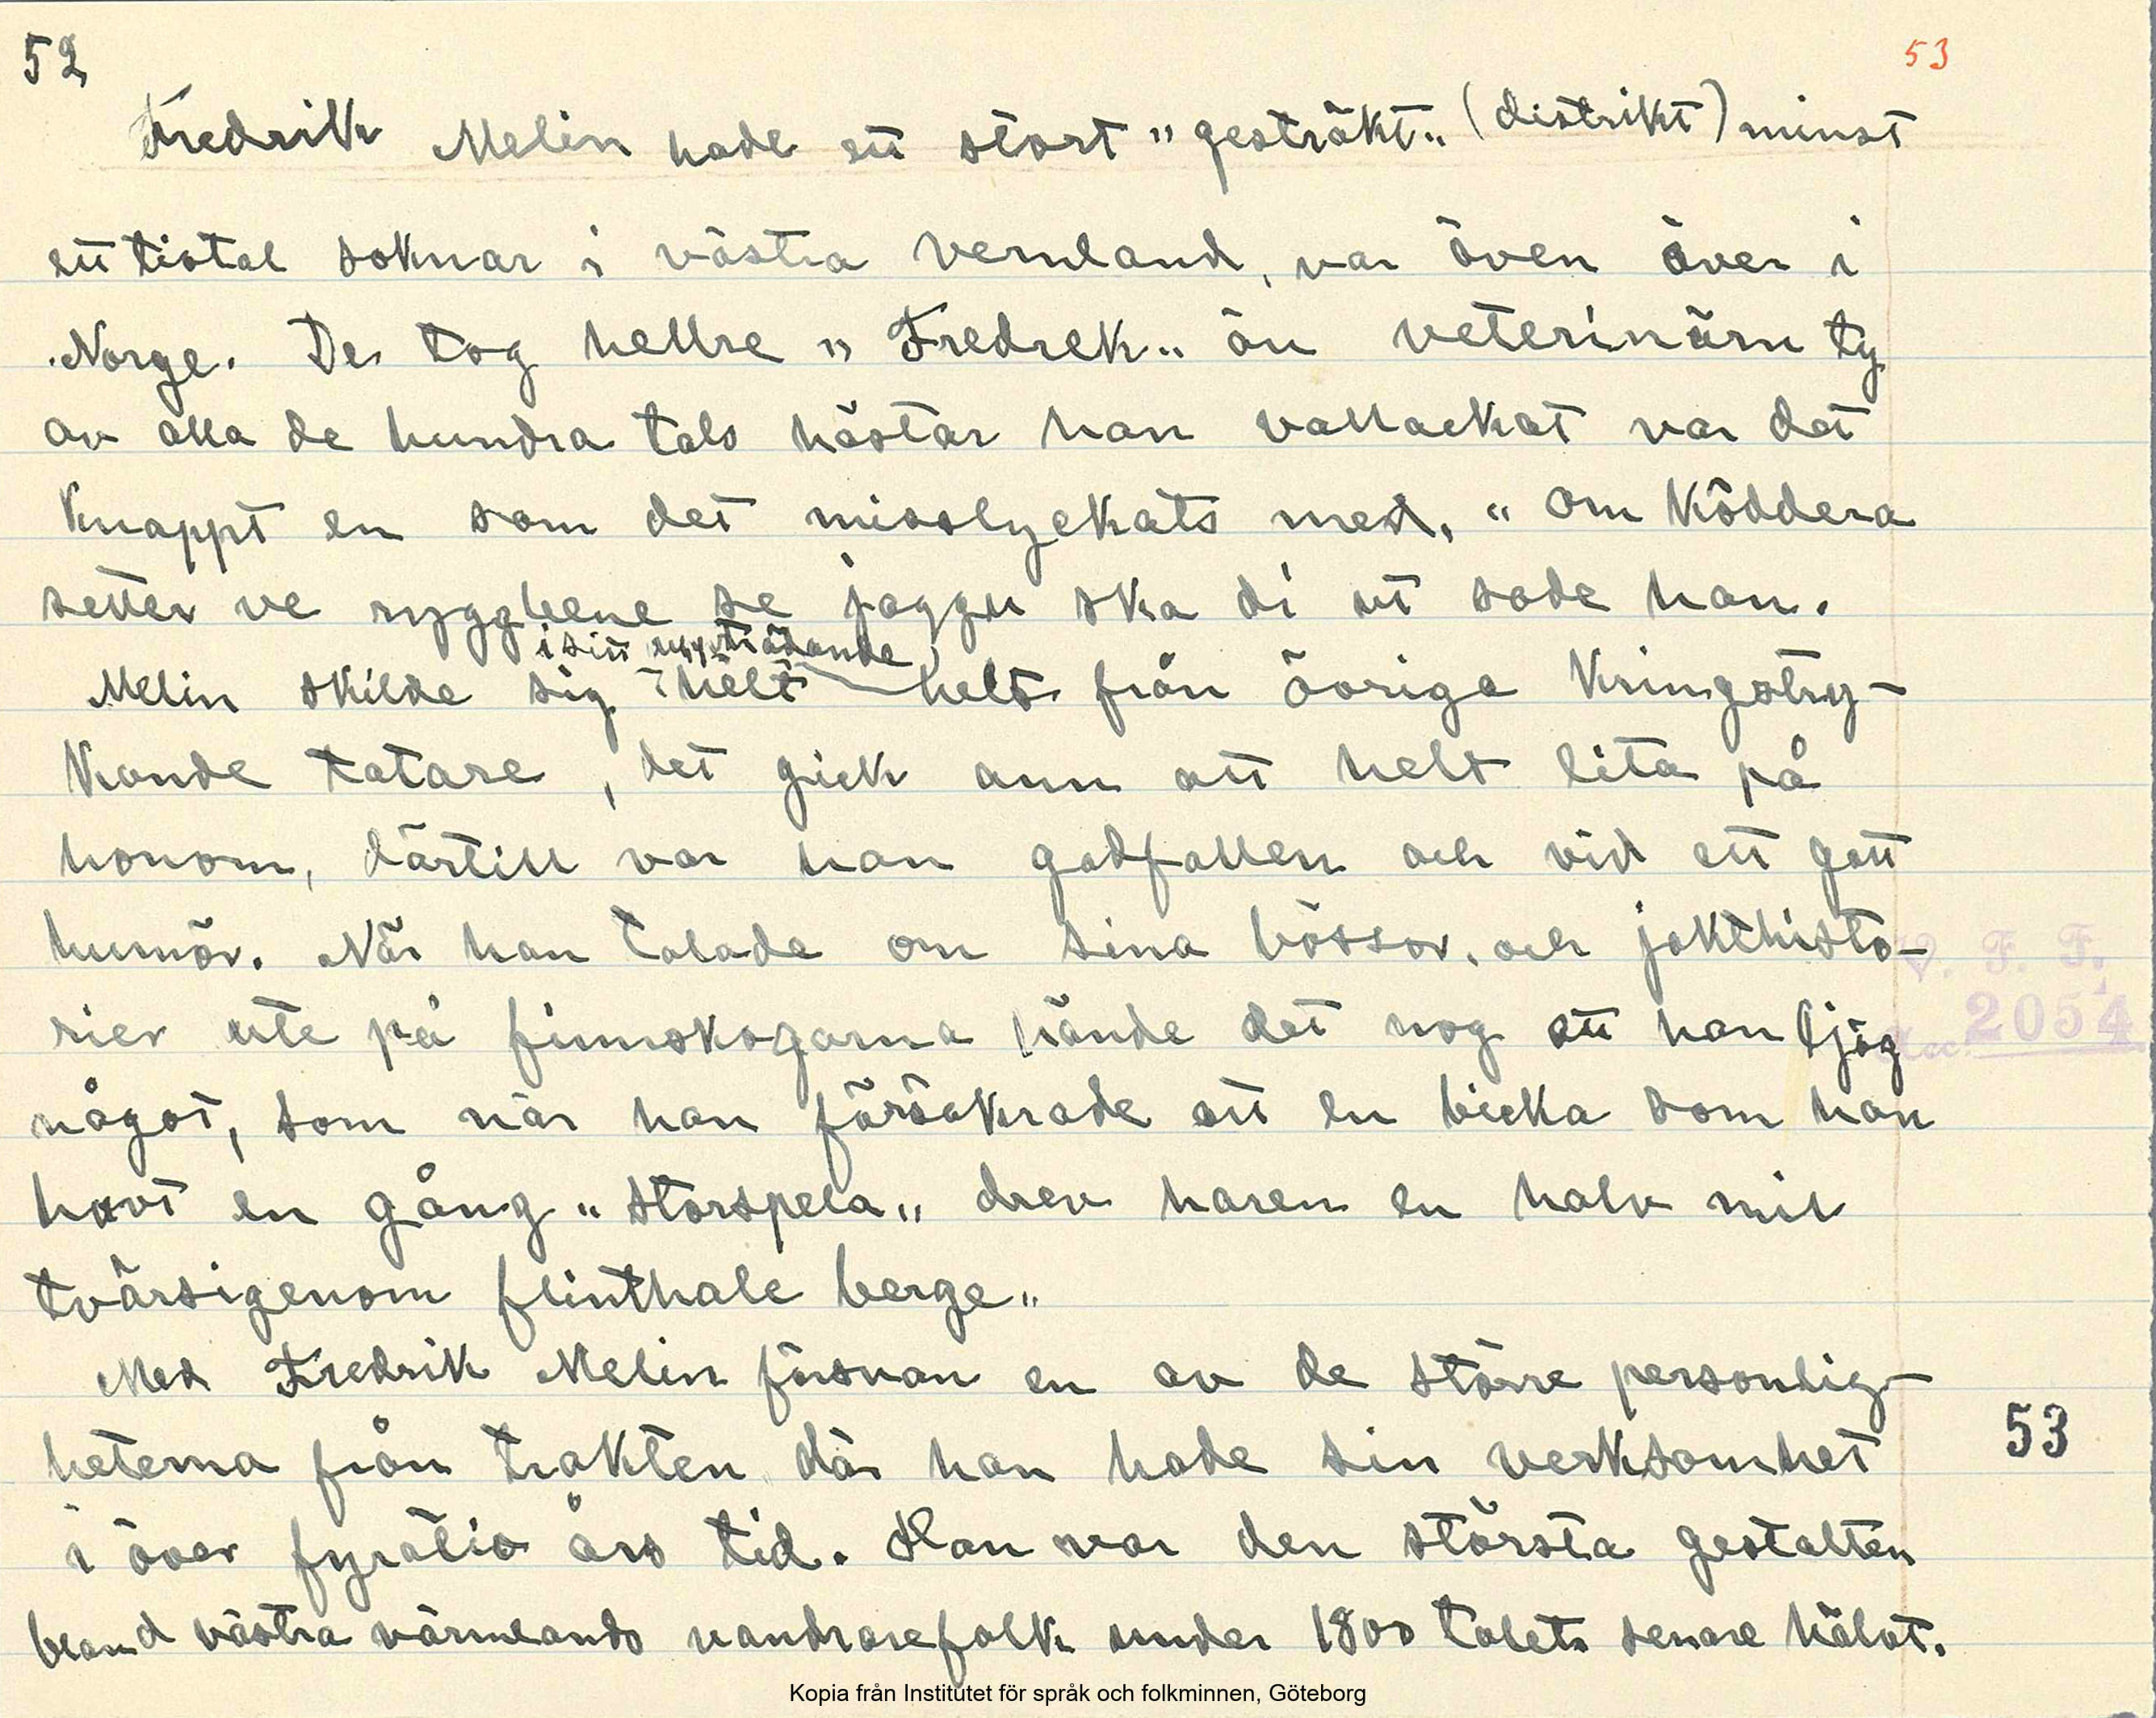 52
53
Fredrik Melin hade ett stort "gesträkt" (distrikt) minst
ett tiotal soknar i västra Vermland, var även över i
Norge. De tog hellre "Fredrek" än veterinärn ty
av alla de hundra tals hästar han vallackat var det
knappt en som det misslyckats med, "om köddera
setter ve ryggbene se jaggu ska di ut sade han.
i sitt uppträdande
Melin skilde sig helt helt från övriga kringstry-
kande tatare, det gick ann att helt lita på
honom, därtill var han godfallen och vid ett gott
humör. När han talade om sina bössor, och jakthisto-
rier ute på finnskogarna hände det nog att han ljög
något, som när han försäkrade att en bicka som han
havt en gång "storspela" drev haren en halv mil
tvärsigenom flinthale berge"
Med Fredrik Melin försvan en av de större personlig-
heterna från trakten där han hade sin verksamhet
i över fyratio års tid. Han var den största gestalten
bland västra värmlands vandrarefolk under 1800 talets senare hälvt.
V. F. F.
Acc. 2054
53
Kopia från Institutet för språk och folkminnen, Göteborg